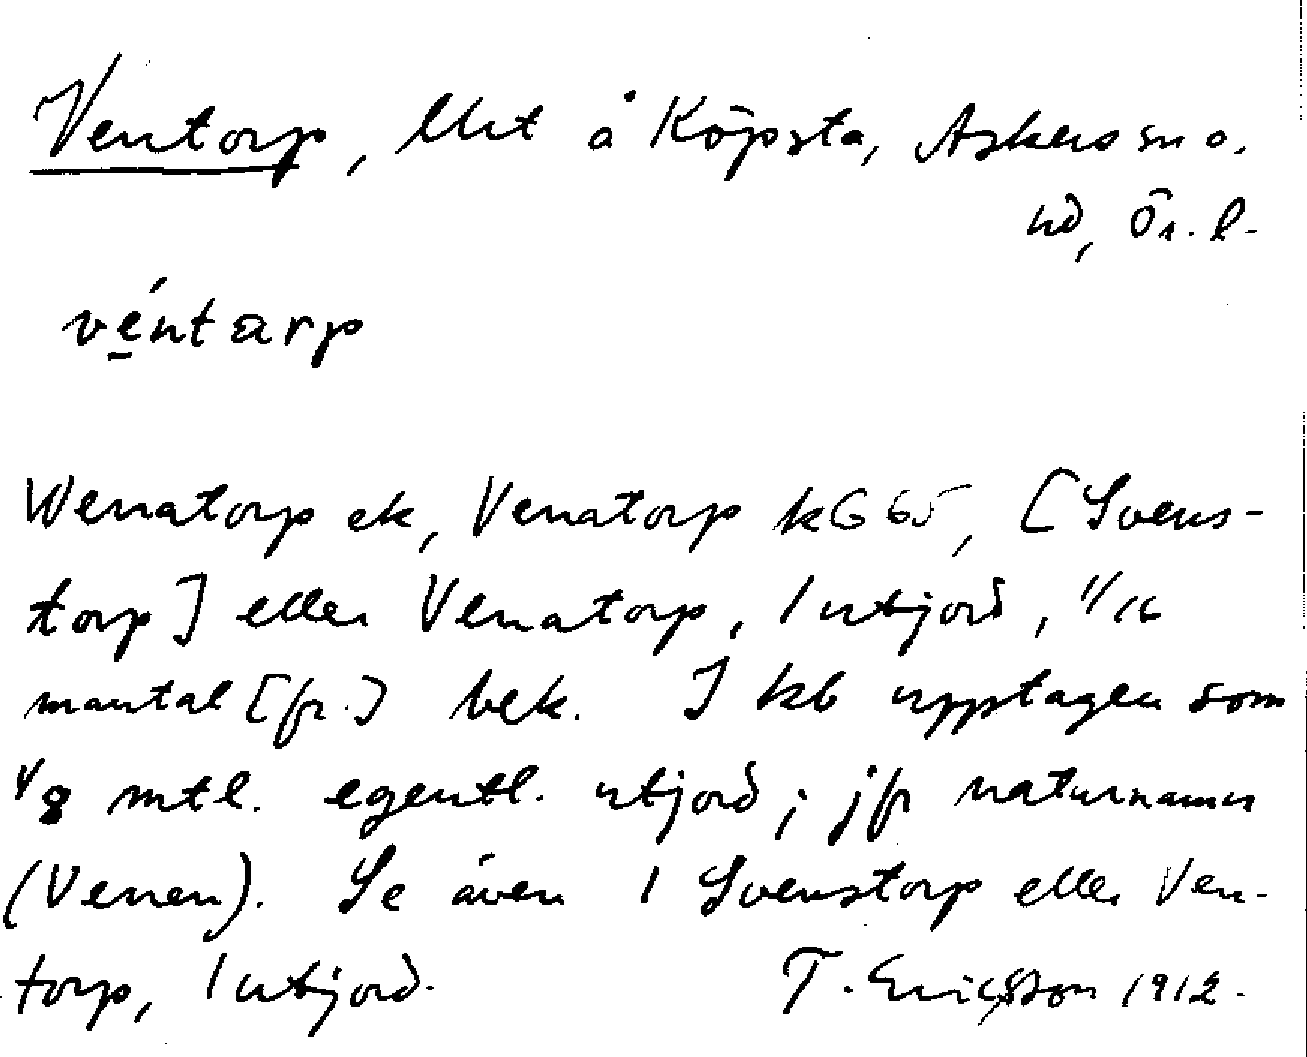 Ventorp, lht å Köpsta, Askers sn o.
hd, Ör. l.
véntarp
Wenatorp ek, Venatorp kG 65, [Svens-
torp] eller Venatorp, 1 utjord, 1/16
mantal [fr.] bek. I kb upptagen som
1/8 mtl. egentl. utjord; jfr naturnamn
(Venen). Se även 1 Svenstorp eller Ven-
torp, 1 utjord. T. Ericsson 1912.